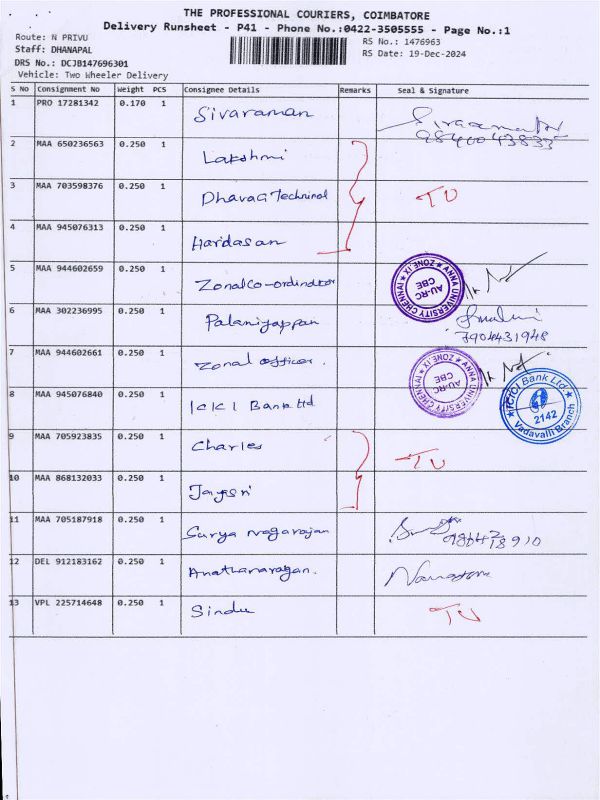 THE PROFESSIONAL COURIERS, COIMBATORE
Delivery Runsheet - P41 - Phone No.:0422-3505555 - Page No.:1
Route: N PRIVU RS No.: 1476963
Staff: DHANAPAL RS Date: 19-Dec-2024
DRS No.: DCJB147696301
Vehicle: Two Wheeler Delivery
S No Consignment No Weight PCS Consignee Details Remarks Seal & Signature
1 PRO 17281342 0.170 1 Sivaraman
2 MAA 650236563 0.250 1 Lakshmi
3 MAA 703598376 0.250 1 TU
4 MAA 945076313 0.250 1 Haridasan
5 MAA 944602659 0.250 1 Zonalco-ordinator ANNA UNIVERSITY CHENNAI ZONE IX AU-RC CBE
6 MAA 302236995 0.250 1 Palaniyappan 7904431948
7 MAA 944602661 0.250 1 Zonal officer. ANNA UNIVERSITY CHENNAI ZONE IX AU-RC CBE
8 MAA 945076840 0.250 1 ICKI Bank ltd ICICI Bank Ltd. 2142 Vadavalli Branch
9 MAA 705923835 0.250 1 Charles TU
10 MAA 868132033 0.250 1 Jaysri
11 MAA 705187918 0.250 1 Surya nagarajan
12 DEL 912183162 0.250 1
13 VPL 225714648 0.250 1 Sindu TU